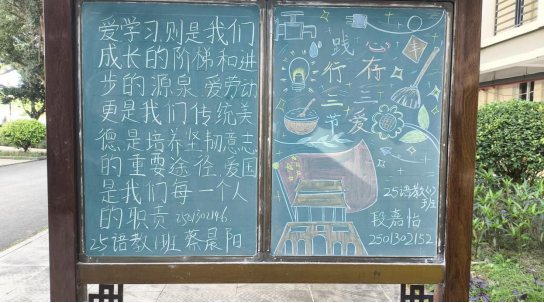 爱学习,则是我们
成长的阶梯和进
步的源泉.爱劳动
更是我们传统美
德,是培养坚韧意志
的重要途径.爱国
是我们每一个人
的职责 2501302146
25语教(1)班 蔡晨阳
践行三节
心存三爱
25语教(1)班
段嘉怡
2501302152